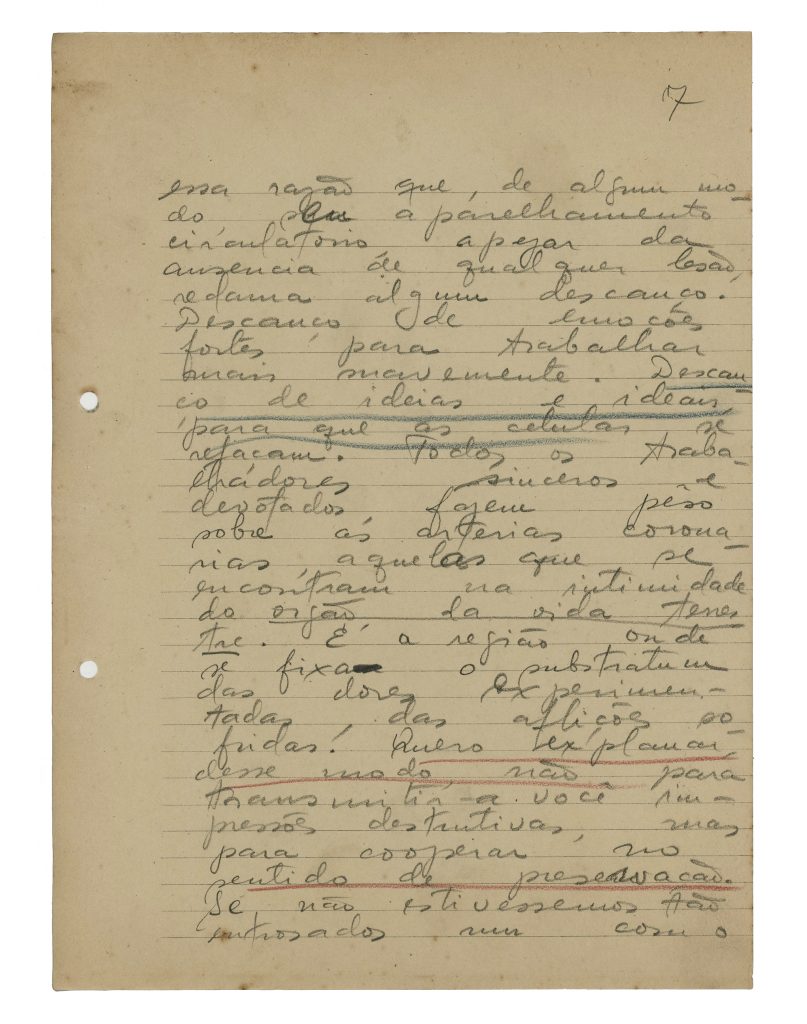 7
essa razão que, de algum mo-
do seu aparelhamento
circulatorio, apezar da
ausencia de qualquer lesão,
reclama algum descanço.
Descanço de emoções
fortes, para trabalhar
mais suavemente. Descan
ço de ideias e ideais,
para que as celulas se
refaçam. Todos os traba-
lhadores sinceros e
devotados fazem pêso
sobre as arterias corona-
rias, aquelas que se
encontram na intimidade
do orgão da vida terres
tre. É a região onde
se fixa o substratum
das dores experimen-
tadas, das aflições so
fridas! Quero explanar,
desse modo, não para
transmitir-a você im-
pressões destrutivas, mas
para cooperar no
sentido de preservação.
Se não estivessemos tão
entrosados um com o